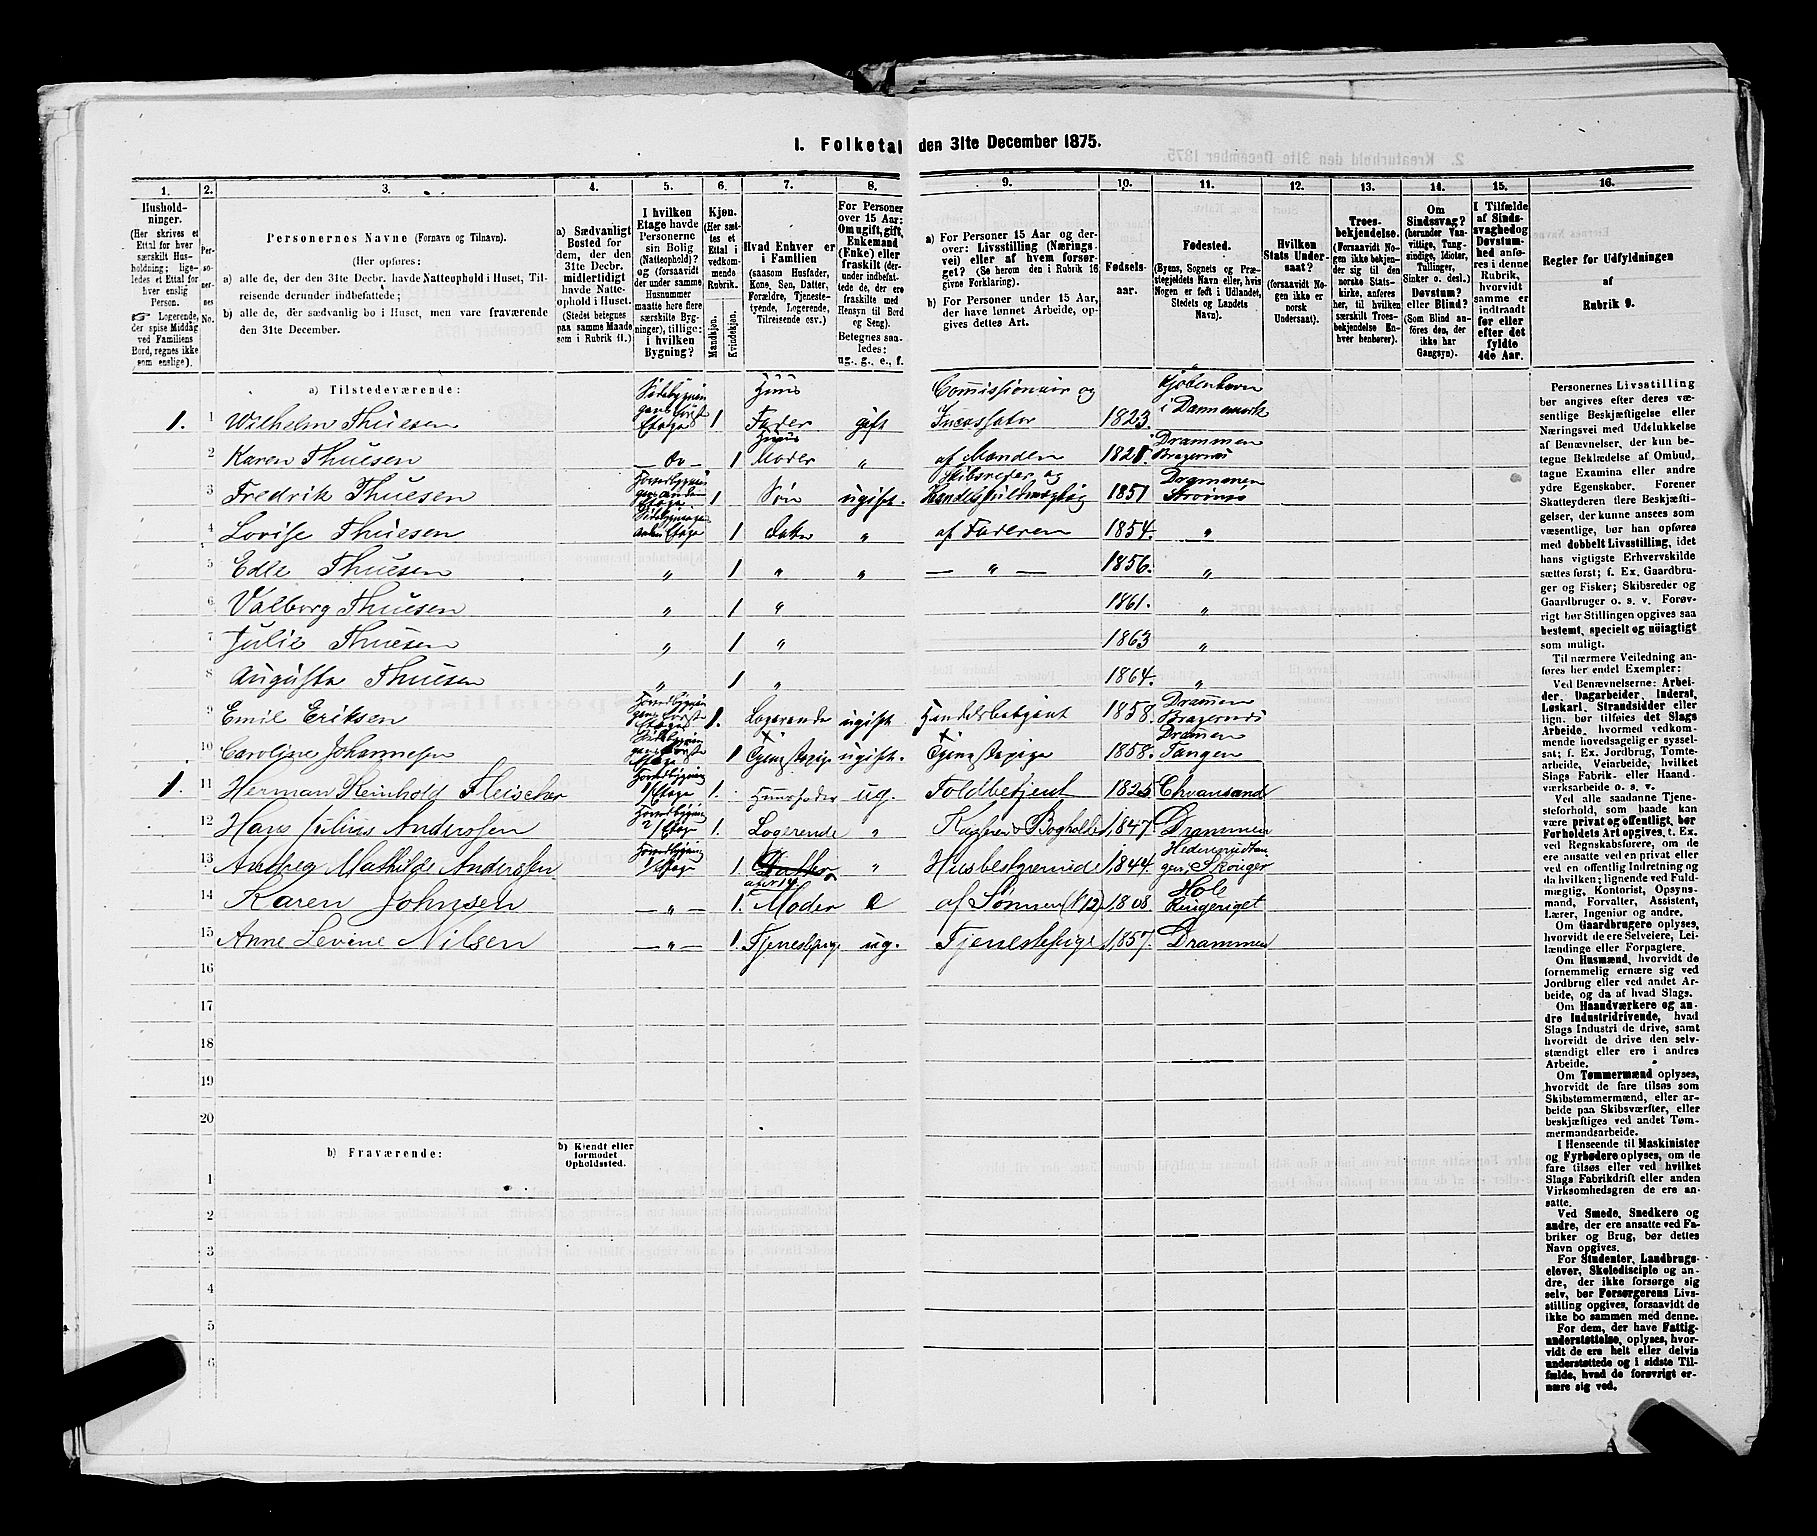 1. Folketal den 31te December 1875.
1. 2. 3. 4. 5. 6. 7. 8. 9. 10. 11. 12. 13. 14. 15. 16.
Husholdninger.
(Her skrives et
Ettal for hver
særskilt Husholdning;
ligeledes et Ettal for
hver enslig
Person.
Logerende,
der spise Middag
ved Familiens
Bord, regnes ikke
som enslige).
Personernes No.
Personernes Navne (Fornavn og Tilnavn).
(Her opføres:
a) alle de, der den 31te Decbr. havde Natteophold i Huset, Tilreisende derunder indbefattede;
b) alle de, der sædvanlig bo i Huset, men vare fraværende
den 31te December.
a) Sædvanligt
Bosted for
dem, der den
31te Decbr.
midlertidigt
havde Natteophold i Huset.
(Stedet betegnes
paa samme Maade
som i Rubrik 11.)
I hvilken
Etage havde
Personerne
sin Bolig
(Natteophold)?
og (forsaavidt
der under samme
Husnummer
maatte være flere
særskilte Bygninger), tillige:
i hvilken
Bygning?
Kjøn.
(Her sættes et
Ettal i
vedkommende
Rubrik.
Mandkjøn.
Kvindekjøn.
Hvad Enhver er
i Familien
(saasom Husfader,
Kone, Søn, Datter,
Forældre, Tjenestetyende, Logerende,
Tilreisende osv.)
For Personer
over 15 Aar:
Om ugift, gift,
Enkemand
(Enke) eller
fraskilt (derunder indbefattede de, der ere
fraskilte med
Hensyn til Bord
og Seng).
Betegnes saaledes:
ug., g., e., f.
a) For Personer 15 Aar og derover: Livsstilling (Næringsvei) eller af hvem forsørget? (Se herom den i Rubrik 16
givne Forklaring).
b) For Personer under 15 Aar,
der have lønnet Arbeide, opgives dettes Art.
Fødselsaar.
Fødested.
(Byens, Sognets og Præstegjeldets Navn eller, hvis
Nogen er født i Udlandet,
Stedets og Landets
Navn).
Hvilken
Stats Undersaat?
(forsaavidt Nogen ikke er
norsk
Undersaat).
Troesbekjendelse.
(Forsaavidt Nogen ikke bekjender sig til den
norske Statskirke, anføres
her, til hvilken
særskilt Troesbekjendelse Enhver henhører).
Om
Sindssvag?
(herunder Vanvittige, Tungsindige, Idioter,
Tullinger,
Sinker o. desl.)
Døvstum?
eller Blind?
(Som Blind anføres den, der
ikke har
Gangsyn).
I Tilfælde
af Sindssvaghed og
Døvstumhed anføres i denne
Rubrik,
hvorvidt
samme er
indtraadt
før eller
efter det
fyldte
4de Aar.
Regler for Udfyldningen
af
Rubrik 9.
a) Tilstedeværende:
1. 1 Wilhelm Thuesen Sidebygningens første Etage 1 Huus Fader gift Commissionair og Incassator 1823. Kjøbenhavn i Dannemark
2 Karen Thuesen — Do — 1 Huus Moder " af Manden 1821. Drammen Bragernes
3 Fredrik Thuesen 1 Søn ugift. Skibsreder og 1851 Drammen Strømsø
4 Lovise Thuesen Sidebygningen anden Etage 1 Datter " af Faderen 1854. "
5 Edle Thuesen " 1 " " — " — 1856. "
6 Valborg Thuesen " 1 " 1861. "
7 Julie Thuesen " 1 " 1863 "
8 Augusta Thuesen " 1 " 1864. "
9 Emil Eriksen Hovedbygningens første Etage 1. Logerende ugift Handelsbetjent 1858. Drammen Bragernes
10 Caroline Johannesen Sidebygningens første Etage 1 Tjenestepige ugift. Tjenestepige 1858. Drammen Tangen
1. 11 Herman Reinhold Fleischer Hovedbygning 1/Etage 1. Huusfader ug. Toldbetjent 1825 Chransand
12 Hans Julius Anderssen Hovedbygning 2/Etage 1. Logerende " Kasserer & Bogholder 1847. Drammen
13 Mathilde Anderssen Hovedbygning 1/Etage 1 Datter af No 14 " Husbestyrerinde 1844.
14 Karen Johnsen — " — 1. Moder e af Sønnen (N 12) 1808 Hole Ringeriget
15 Anne Levine Nilsen — " — 1. Tjenestepige ug. Tjenestepige 1857. Drammen
16
17
18
19
20
b) Fraværende:
b) Kjendt eller
formodet
Opholdssted.
1
2
3
4
5
6
Personernes Livsstilling
bør angives efter deres væsentlige Beskjæftigelse eller
Næringsvei med Udelukkelse
af Benævnelser, der kun betegne Beklædelse af Ombud,
tagne Examina eller andre
ydre Egenskaber. Forener
Skatteyderen flere Beskjæftigelser, der kunne ansees som
væsentlige, bør han opføres
med dobbelt Livsstilling, idet
hans vigtigste Erhvervskilde
sættes først; f. Ex. Gaardbruger og Fisker; Skibsreder og
Gaardbruger o. s. v. Forøvrigt bør Stillingen opgives saa
bestemt, specielt og nöiagtigt
som muligt.
Til nærmere Veiledning anføres her endel Exempler:
Ved Benævnelserne: Arbeider, Dagarbeider, Inderst,
Løskarl, Strandsidder eller
lign. bør tilføies det Slags
Arbeide, hvormed vedkommende hovedsagelig er sysselsat; f. Ex. Jordbrug, Tomtearbeide, Veiarbeide, hvilket
Slags Fabrik- eller Haandværksarbeide o. s. v.
Ved alle saadanne Tjenesteforhold, som baade kan
være privat og offentligt, bør
Forholdets Art opgives, t. Ex.
ved Regnskabsførere, om de
ere ansatte ved en privat eller
ved en offentlig Indretning og
da hvilken; lignende ved Fuldmægtig, Kontorist, Opsynsmand, Forvalter, Assistent,
Lærer, Ingeniør og andre.
Om Gaardbrugere oplyses,
hvorvidt de ere Selveiere, Leilændinge eller Forpagtere.
Om Husmænd, hvorvidt de
fornemmelig ernære sig ved
Jordbrug eller ved andet Arbeide, og da af hvad Slags.
Om Haandværkere og andre Industridrivende, hvad
Slags Industri de drive, samt
hvorvidt de drive den selvstændigt eller ere i andres
Arbeide.
Om Tømmermænd oplyses,
hvorvidt de fare tilsøs som
Skibstømmermænd, eller arbeide paa Skibsværfter, eller
beskjæftiges ved andet Tømmermandsarbeide.
I Henseende til Maskinister
og Fyrbødere oplyses, om de
fare tilsøs eller ved hvilket
Slags Fabrikdrift eller anden
Virksomhedsgren de ere ansatte.
Ved Smede, Snedkere og
andre, der ere ansatte ved Fabriker og Brug, bør dettes
Navn opgives.
For Studenter, Landbrugselever, Skoledisciple og andre, der ikke forsørge sig
selv, bør Forsørgerens Livsstilling opgives, forsaavidt de
ikke bo sammen med denne.
For dem, der have Fattigunderstøttelse, oplyses, hvorvidt de ere helt eller delvis
understøttede og i sidste Tilfælde, hvad de forøvrigt ernære sig ved.